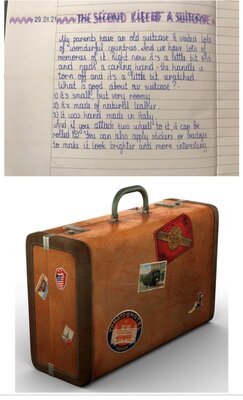 29.01.21 THE SECOND LIFE OF A SUITCASE
My parents have an old suitcase. It visited lots
of wonderful countries. And we have lots of
memories of it. Right now it's a little bit old
and needs a caring hand - the handle is
torn off and it's a little bit scratched.
What is good about our suitcase?
1) it's small, but very roomy
2) it's made of natural leather
3) it was hand made in Italy
And if you attach two wheels to it, it can be
rolled. You can also apply stickers or badges
to make it look brighter and more interesting.